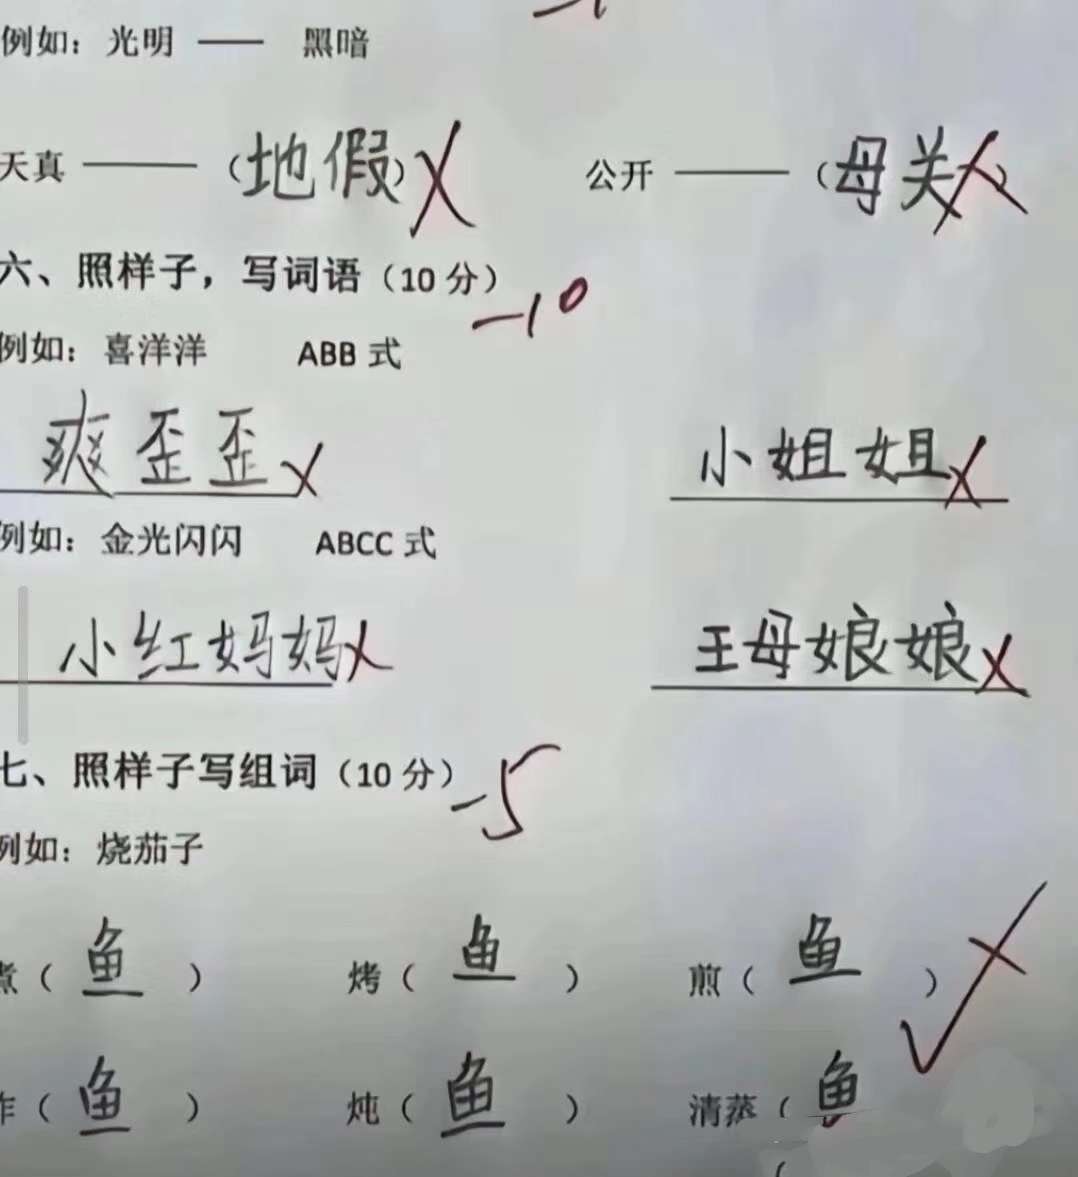 例如：光明 —— 黑暗
天真 ——（地假） 公开 ——（母关）
六、照样子，写词语（10 分） -10
例如：喜洋洋 ABB 式
爽歪歪 小姐姐
例如：金光闪闪 ABCC 式
小红妈妈 王母娘娘
七、照样子写组词（10 分） -5
例如：烧茄子
煮（鱼） 烤（鱼） 煎（鱼）
炸（鱼） 炖（鱼） 清蒸（鱼